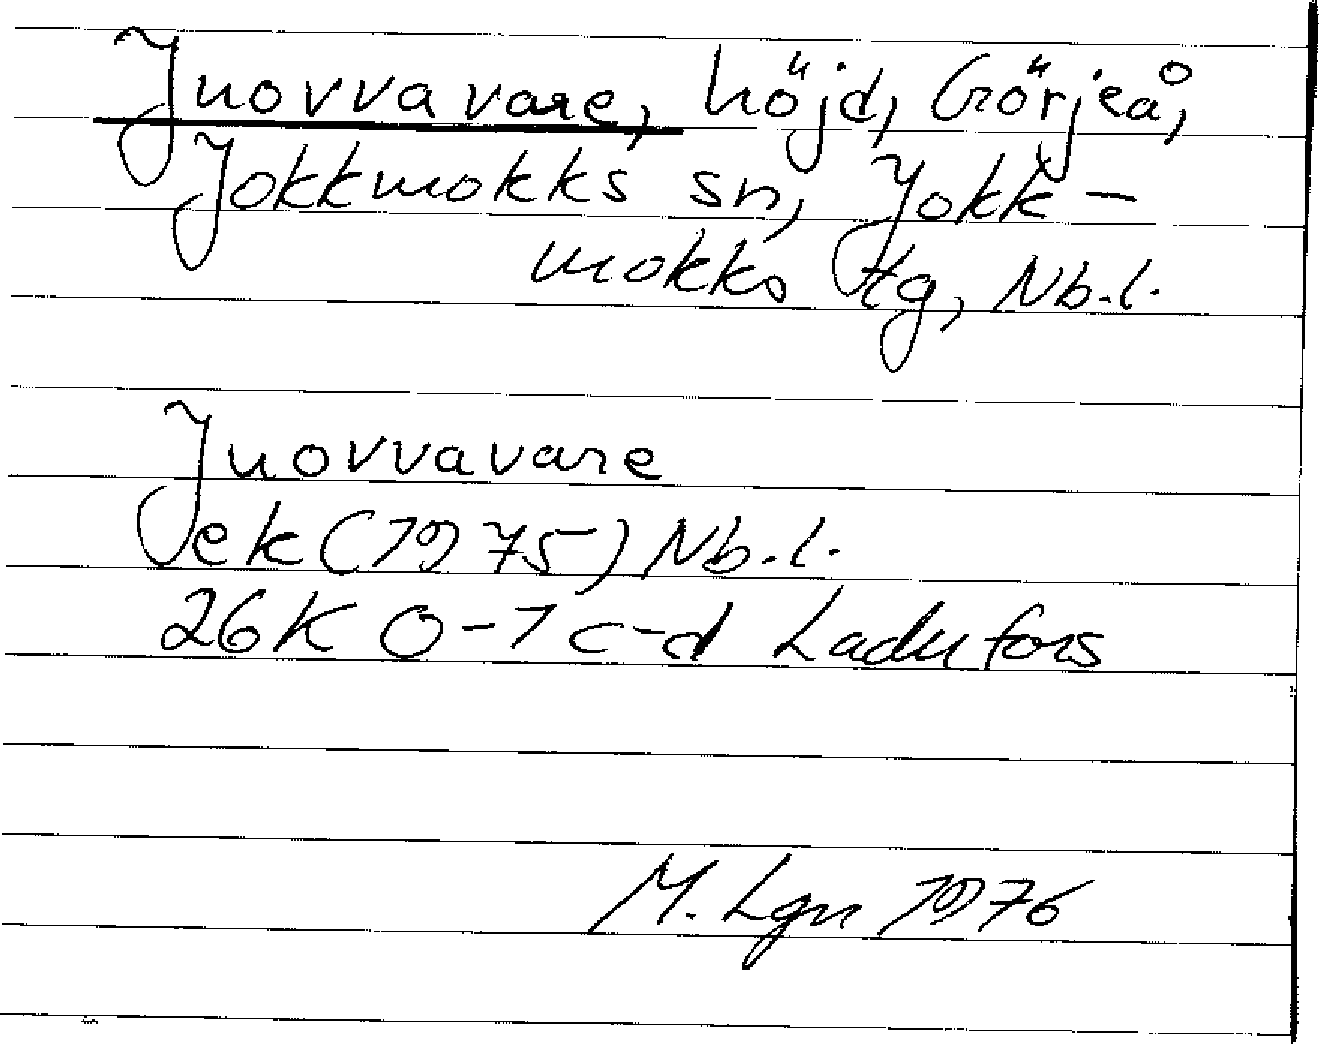 Juovvavare, höjd, Görjeå,
Jokkmokks sn, Jokk-
mokks tg, Nb.l.
Juovvavare
Jek (1975) Nb.l.
26K 0-1 c-d Ladufors
M. Lgn 1976